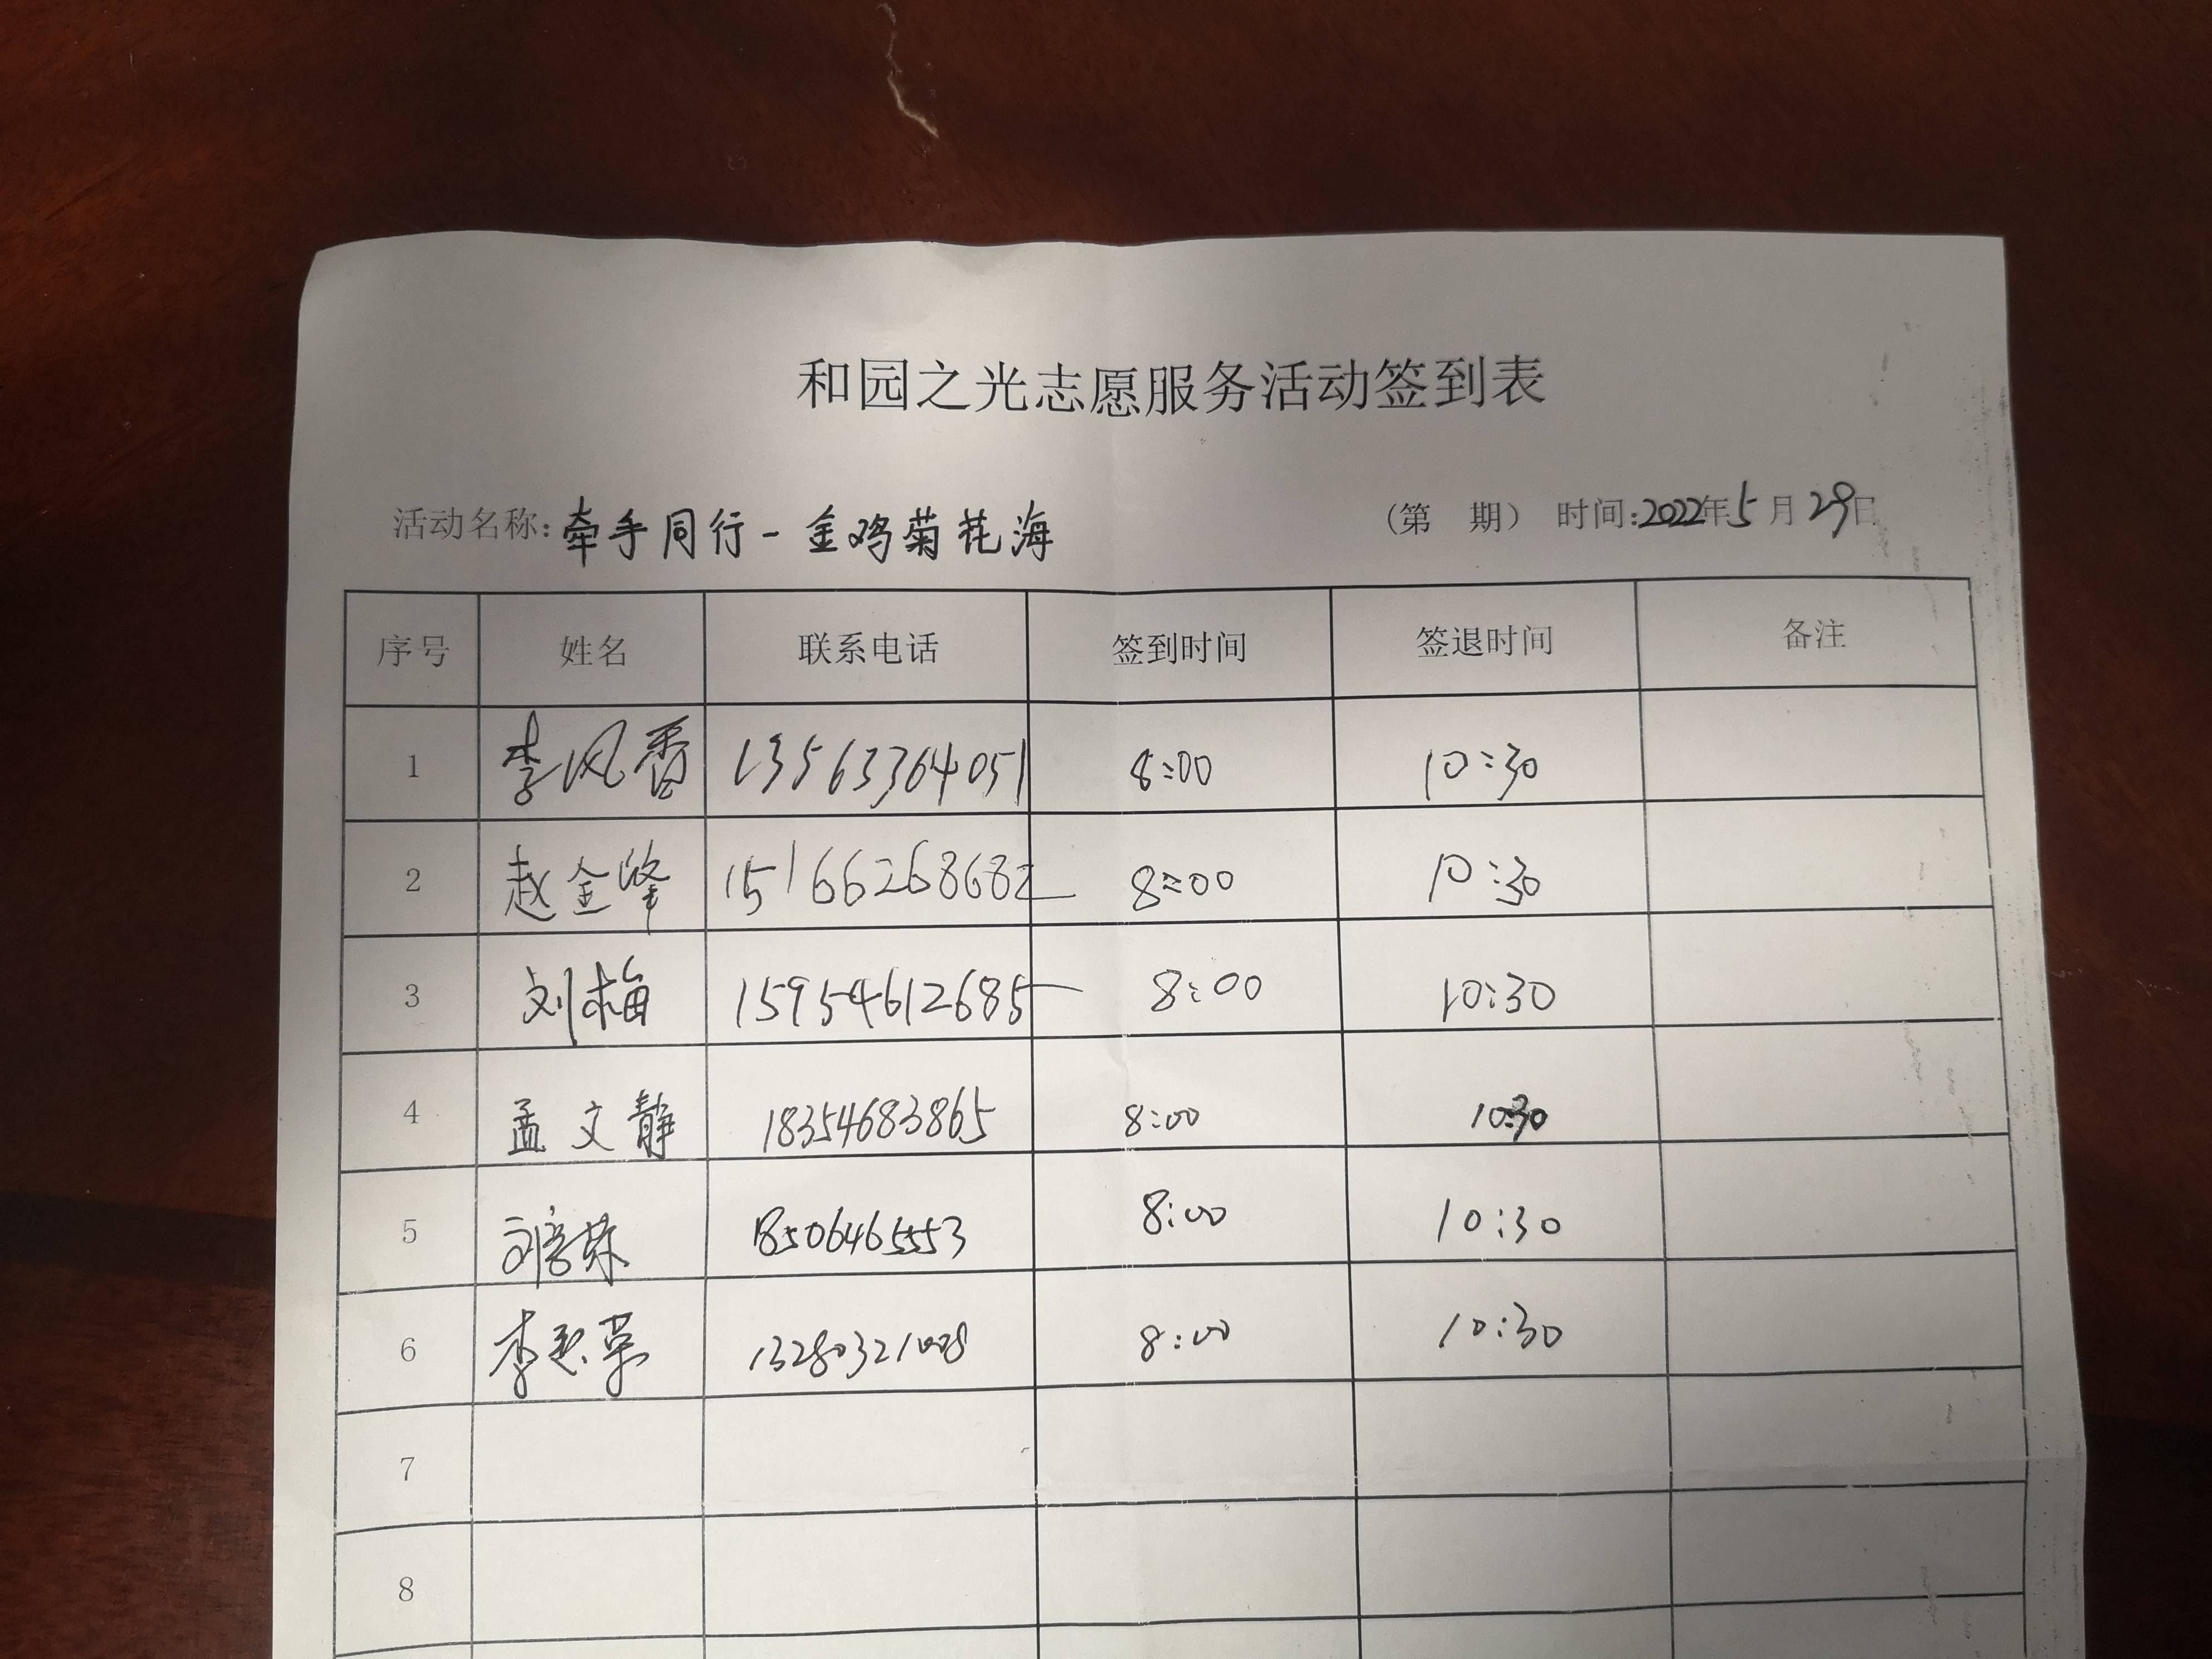 和园之光志愿服务活动签到表
活动名称: 牵手同行-金鸡菊花海 (第 期) 时间:2022年5月29日
序号 姓名 联系电话 签到时间 签退时间 备注
1 李风香 13563364051 8:00 10:30
2 赵金峰 15166268682 8:00 10:30
3 刘梅 15954612685 8:00 10:30
4 孟文静 18354683865 8:00 10:30
5 18506465553 8:00 10:30
6 13280321008 8:00 10:30
7
8